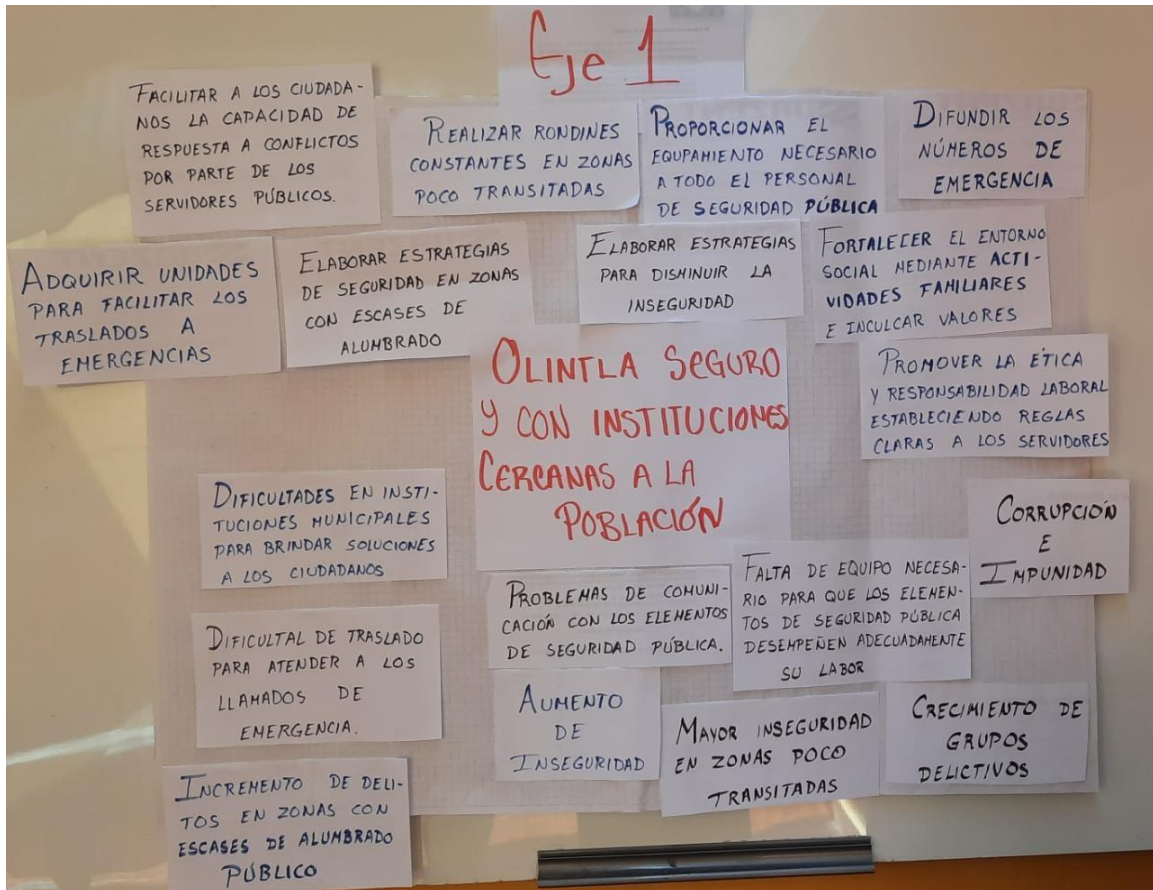 Eje 1
FACILITAR A LOS CIUDADA-
NOS LA CAPACIDAD DE
RESPUESTA A CONFLICTOS
POR PARTE DE LOS
SERVIDORES PÚBLICOS.
REALIZAR RONDINES
CONSTANTES EN ZONAS
POCO TRANSITADAS
PROPORCIONAR EL
EQUPAMIENTO NECESARIO
A TODO EL PERSONAL
DE SEGURIDAD PÚBLICA
DIFUNDIR LOS
NÚMEROS DE
EMERGENCIA
ADQUIRIR UNIDADES
PARA FACILITAR LOS
TRASLADOS A
EMERGENCIAS
ELABORAR ESTRATEGIAS
DE SEGURIDAD EN ZONAS
CON ESCASES DE
ALUMBRADO
ELABORAR ESTRATEGIAS
PARA DISMINUIR LA
INSEGURIDAD
FORTALECER EL ENTORNO
SOCIAL MEDIANTE ACTI-
VIDADES FAMILIARES
E INCULCAR VALORES
PROMOVER LA ÉTICA
Y RESPONSABILIDAD LABORAL
ESTABLECIENDO REGLAS
CLARAS A LOS SERVIDORES
OLINTLA SEGURO
Y CON INSTITUCIONES
CERCANAS A LA
POBLACIÓN
DIFICULTADES EN INSTI-
TUCIONES MUNICIPALES
PARA BRINDAR SOLUCIONES
A LOS CIUDADANOS
PROBLEMAS DE COMUNI-
CACIÓN CON LOS ELEMENTOS
DE SEGURIDAD PÚBLICA.
FALTA DE EQUIPO NECESA-
RIO PARA QUE LOS ELEMEN-
TOS DE SEGURIDAD PÚBLICA
DESEMPEÑEN ADECUADAMENTE
SU LABOR
CORRUPCIÓN
E
IMPUNIDAD
DIFICULTAL DE TRASLADO
PARA ATENDER A LOS
LLAMADOS DE
EMERGENCIA.
AUMENTO
DE
INSEGURIDAD
MAYOR INSEGURIDAD
EN ZONAS POCO
TRANSITADAS
CRECIMIENTO DE
GRUPOS
DELICTIVOS
INCREMENTO DE DELI-
TOS EN ZONAS CON
ESCASES DE ALUMBRADO
PÚBLICO